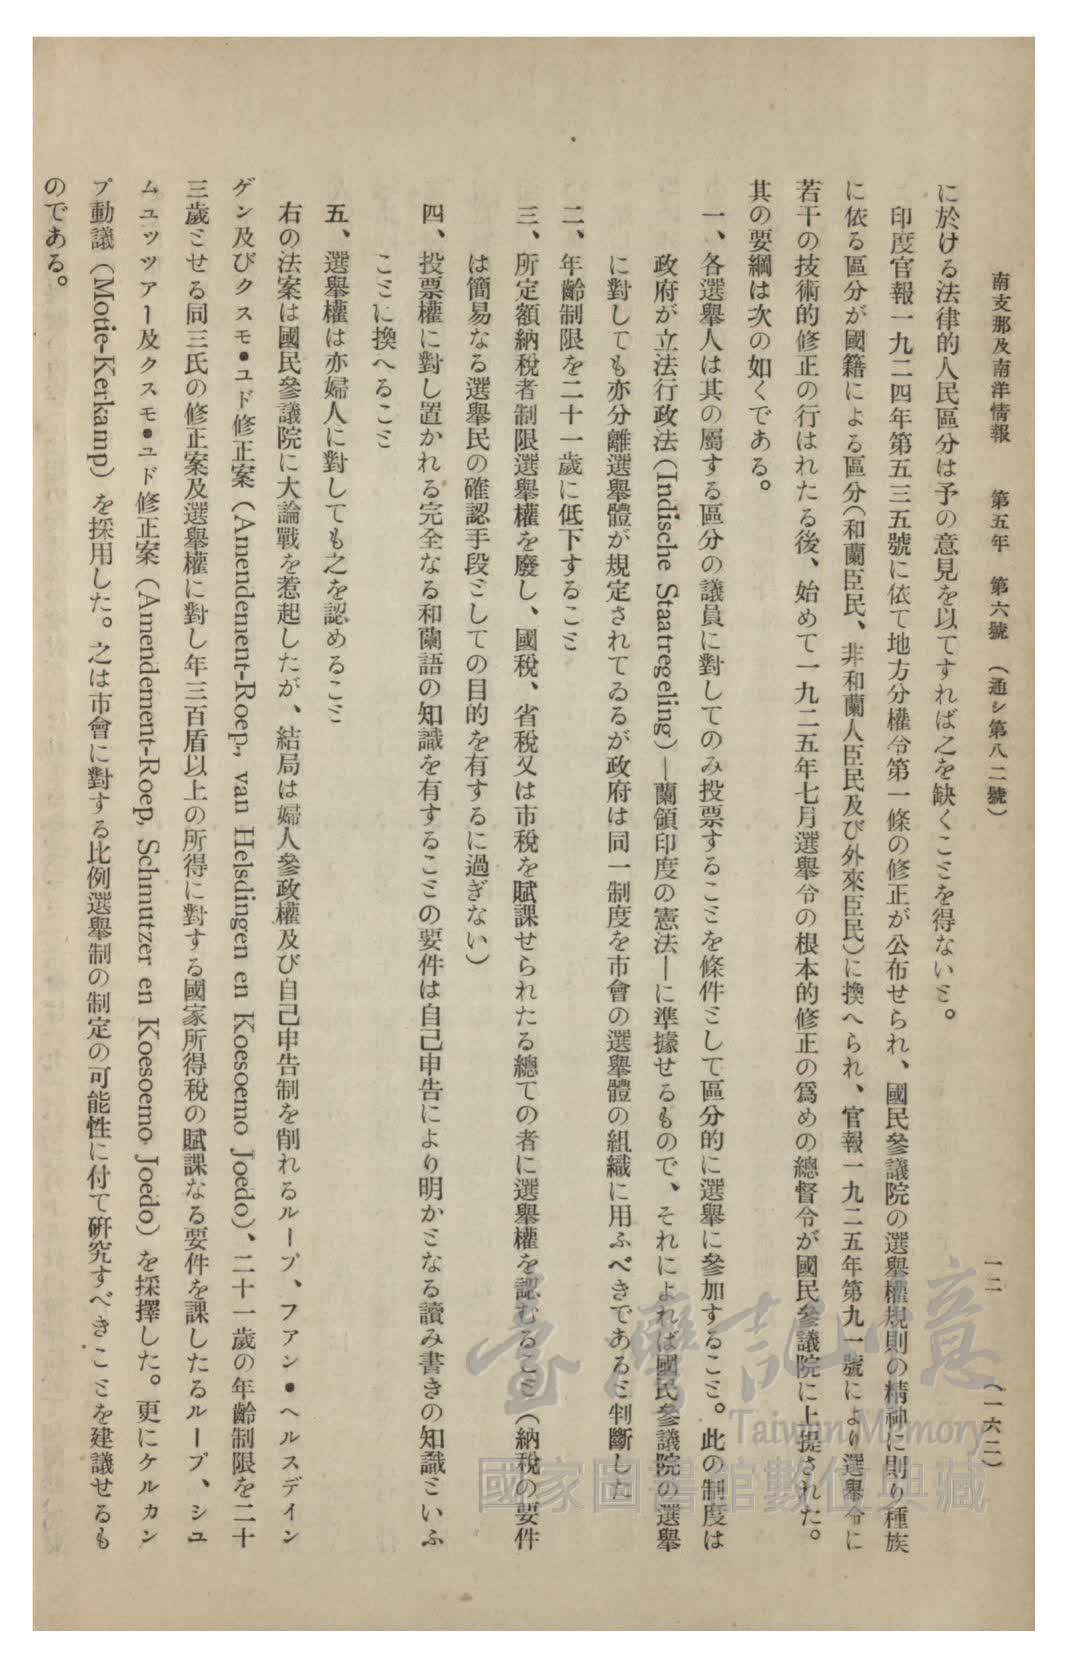 南支那及南洋情報　第五年　第六號　(通シ第八二號)　一二　(一六二)
に於ける法律的人民區分は予の意見を以てすれば之を缺くことを得ないと。
印度官報一九二四年第五三五號に依て地方分權令第一條の修正が公布せられ、國民參議院の選擧權規則の精神に則り種族
に依る區分が國籍による區分(和蘭臣民、非和蘭人臣民及び外來臣民)に換へられ、官報一九二五年第九一號により選擧令に
若干の技術的修正の行はれたる後、始めて一九二五年七月選擧令の根本的修正の爲めの總督令が國民參議院に上提された。
其の要綱は次の如くである。
一、各選擧人は其の屬する區分の議員に對してのみ投票することを條件として區分的に選擧に參加すること。此の制度は
政府が立法行政法(Indische Staatregeling)―蘭領印度の憲法―に準據せるもので、それによれば國民參議院の選擧
に對しても亦分離選擧體が規定されてゐるが政府は同一制度を市會の選擧體の組織に用ふべきであると判斷した
二、年齡制限を二十一歲に低下すること
三、所定額納稅者制限選擧權を廢し、國稅、省稅又は市稅を賦課せられたる總ての者に選擧權を認むること(納稅の要件
は簡易なる選擧民の確認手段としての目的を有するに過ぎない)
四、投票權に對し置かれる完全なる和蘭語の知識を有することの要件は自己申告により明かとなる讀み書きの知識といふ
ことに換へること
五、選擧權は亦婦人に對しても之を認めること
右の法案は國民參議院に大論戰を惹起したが、結局は婦人參政權及び自己申告制を削れるループ、ファン・ヘルスデイン
ゲン及びクスモ・ユド修正案(Amendement-Roep., van Helsdingen en Koesoemo Joedo)、二十一歲の年齡制限を二十
三歲とせる同三氏の修正案及選擧權に對し年三百盾以上の所得に對する國家所得稅の賦課なる要件を課したるループ、シユ
ムユッツアー及クスモ・ユド修正案(Amendement-Roep, Schmutzer en Koesoemo Joedo)を採擇した。更にケルカン
プ動議(Motie-Kerkamp)を採用した。之は市會に對する比例選擧制の制定の可能性に付て硏究すべきことを建議せるも
のである。
臺灣記憶
Taiwan Memory
國家圖書館數位典藏